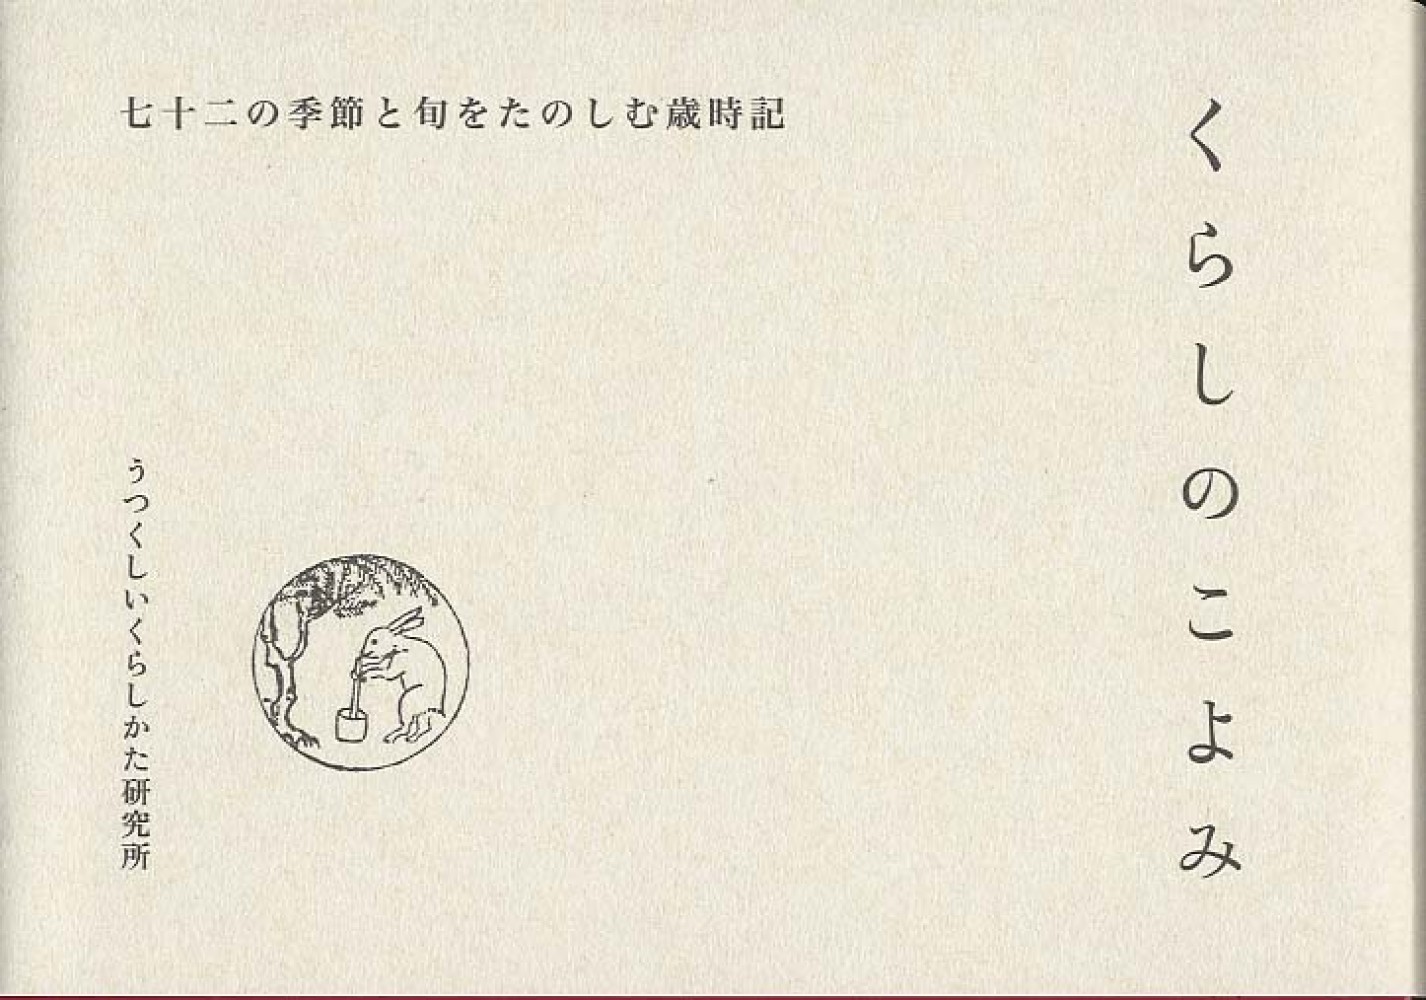 くらしのこよみ
七十二の季節と旬をたのしむ歳時記
うつくしいくらしかた研究所